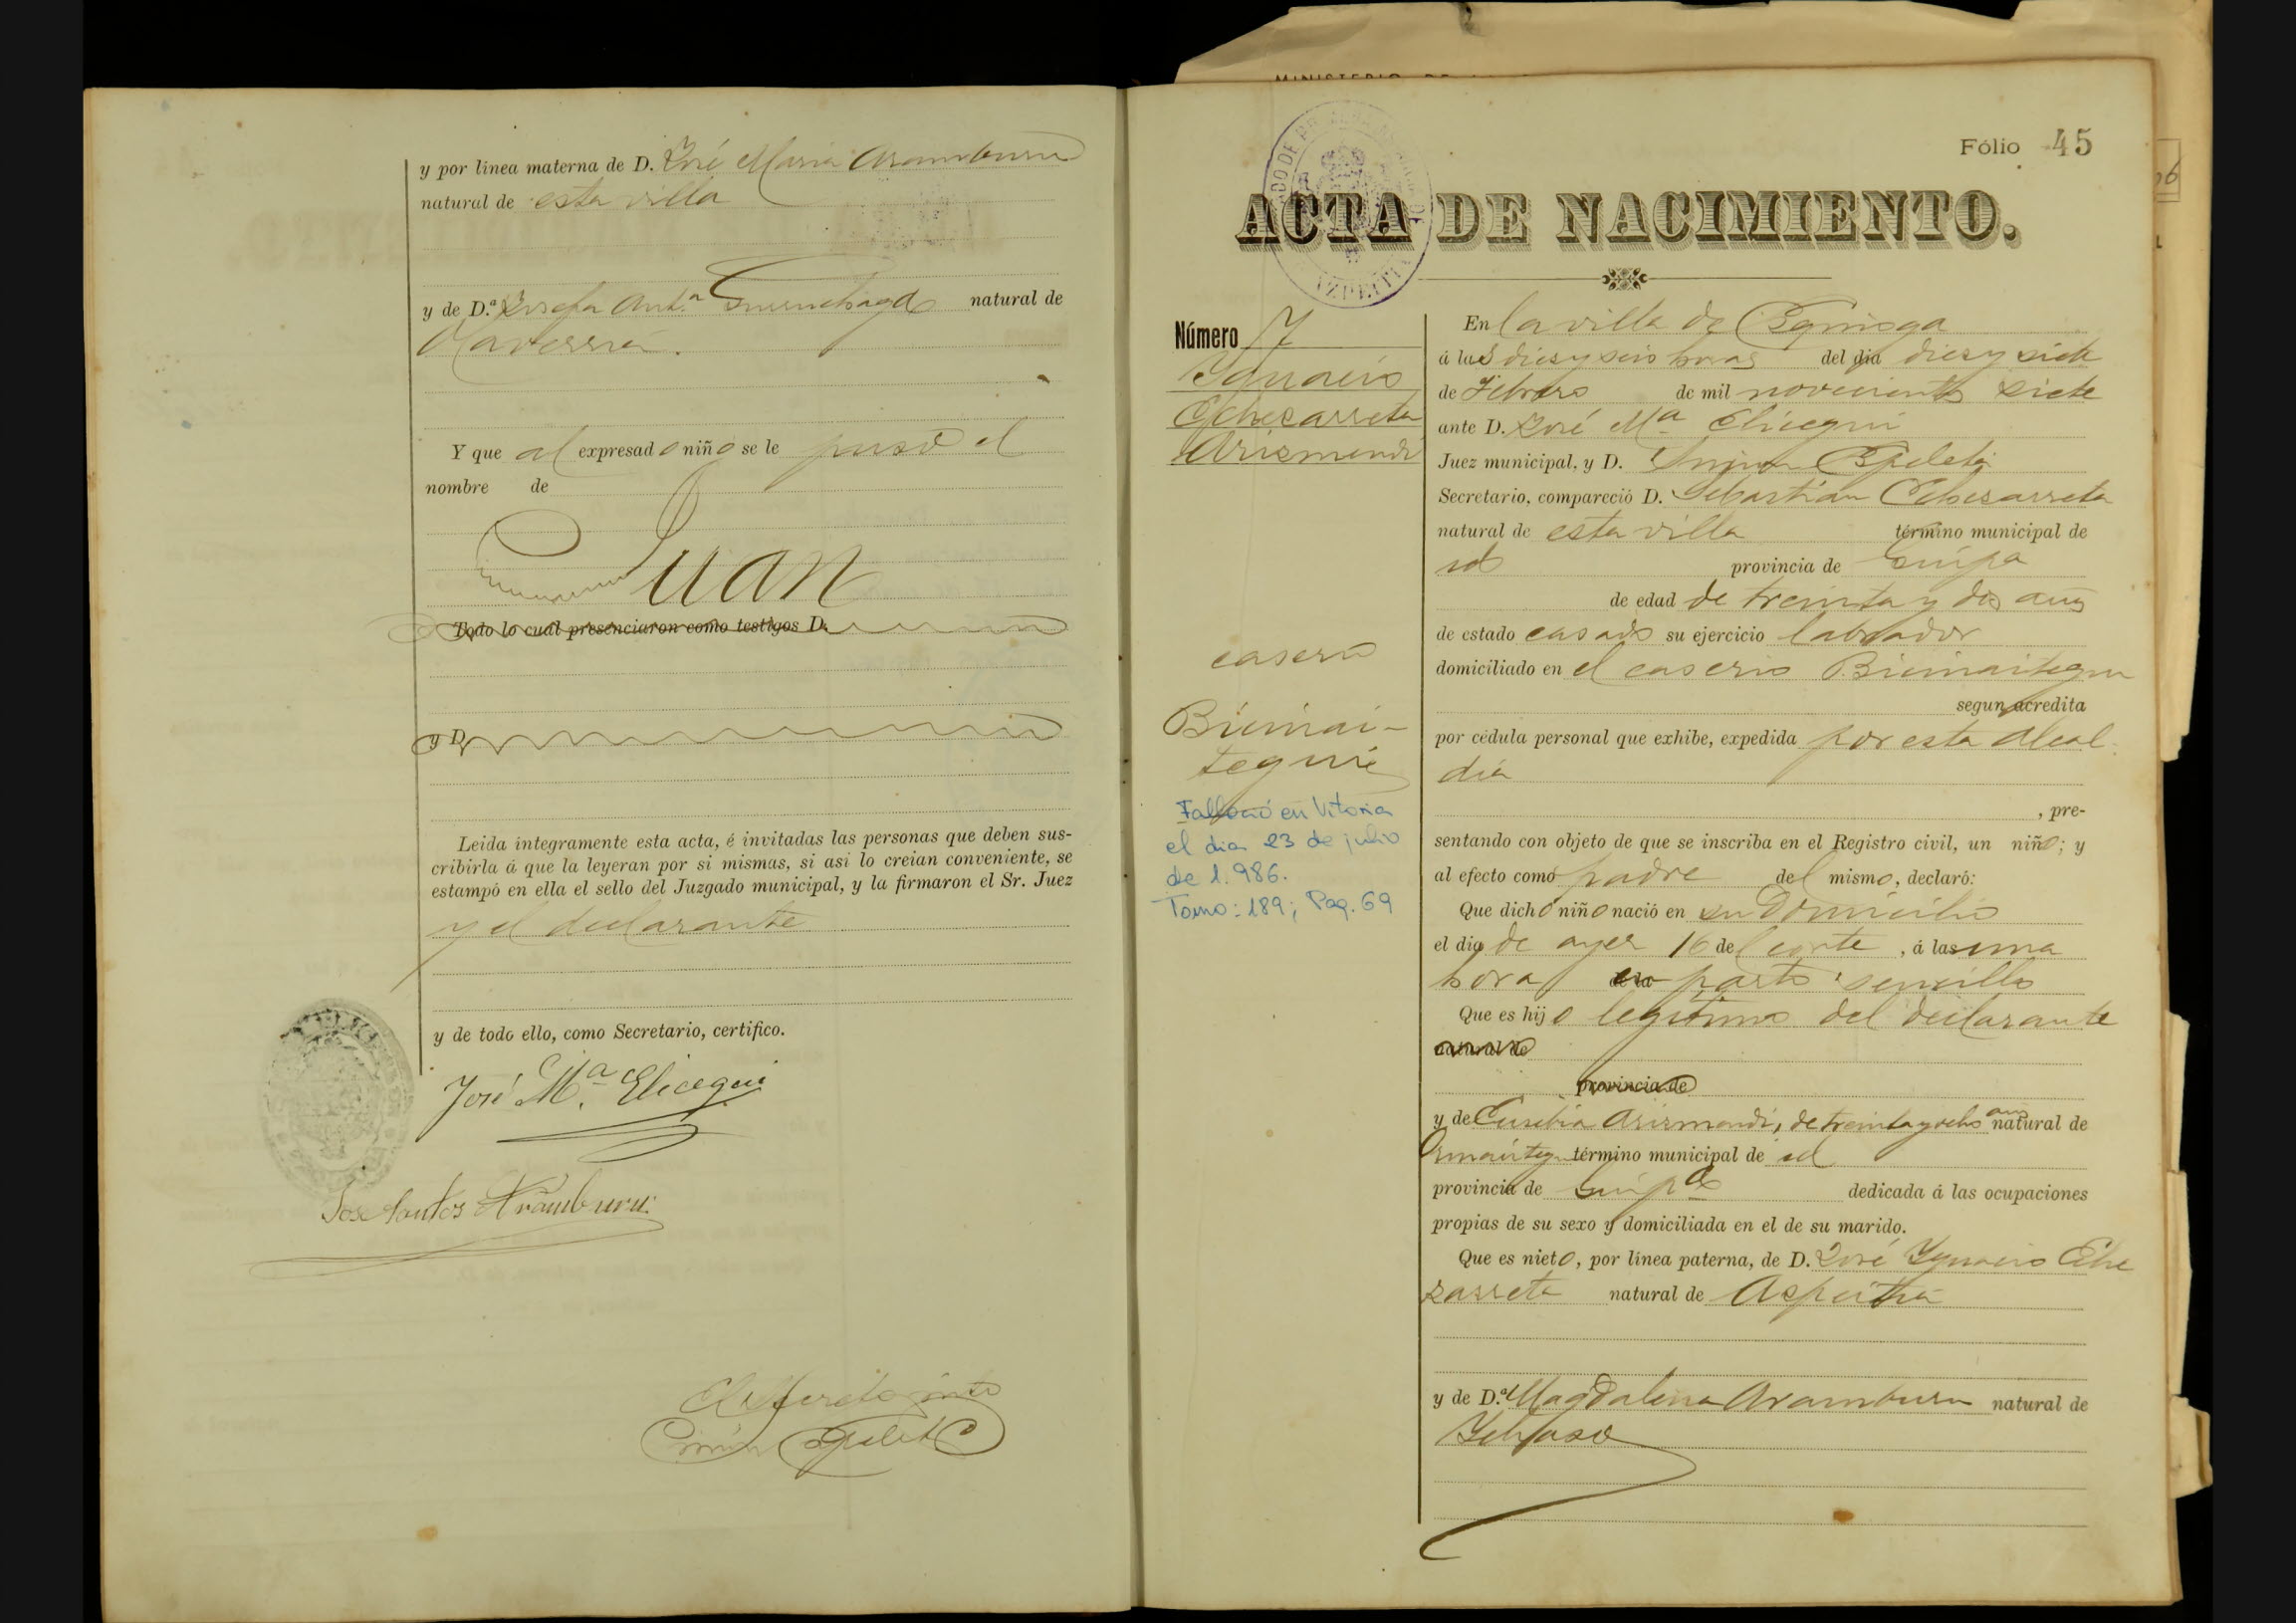 y por línea materna de D. José Maria Aramburu
natural de esta villa
y de D.ª Josefa Ant.ª natural de
Y que al expresado niño se le puso el
nombre de
Juan
Todo lo cual presenciaron como testigos D.
y D.
Leida íntegramente esta acta, é invitadas las personas que deben sus-
cribirla á que la leyeran por si mismas, si asi lo creian conveniente, se
estampó en ella el sello del Juzgado municipal, y la firmaron el Sr. Juez
y el declarante
y de todo ello, como Secretario, certifico.
José M.ª Elicegui
Jose Santos Aramburu
MINISTERIO DE
Fólio 45
ACTA DE NACIMIENTO.
AZPEITIA
Número 7
Ygnacio
Echezarreta
Arizmendi
caserio
Bicuñai-
tegui
Falleció en Vitoria
el dia 23 de julio
de 1.986.
Tomo: 189; Pag. 69
En la villa de
á las dies y seis horas del dia dies y siete
de Febrero de mil novecientos siete
ante D. José Mª Elicegui
Juez municipal, y D. Espeleta
Secretario, compareció D. Sebastián Echezarreta
natural de esta villa término municipal de
id provincia de Guipa
de edad de treinta y dos años
de estado casado su ejercicio labrador
domiciliado en el caserio Bicuñaitegui
segun acredita
por cédula personal que exhibe, expedida por esta Alcal-
dia
, pre-
sentando con objeto de que se inscriba en el Registro civil, un niño; y
al efecto como padre del mismo, declaró:
Que dicho niño nació en su domicilio
el dia de ayer 16 del corte, á las una
hora de la parto sencillo
Que es hijo legítimo del declarante
natural de
provincia de
y de Eusebia Arizmendi, de treinta y ocho años natural de
Ormáiztegui término municipal de id
provincia de Guipª dedicada á las ocupaciones
propias de su sexo y domiciliada en el de su marido.
Que es nieto, por línea paterna, de D. José Ygnacio Eche
zarreta natural de Aspeitia
y de D.ª Magdalena Aramburu natural de